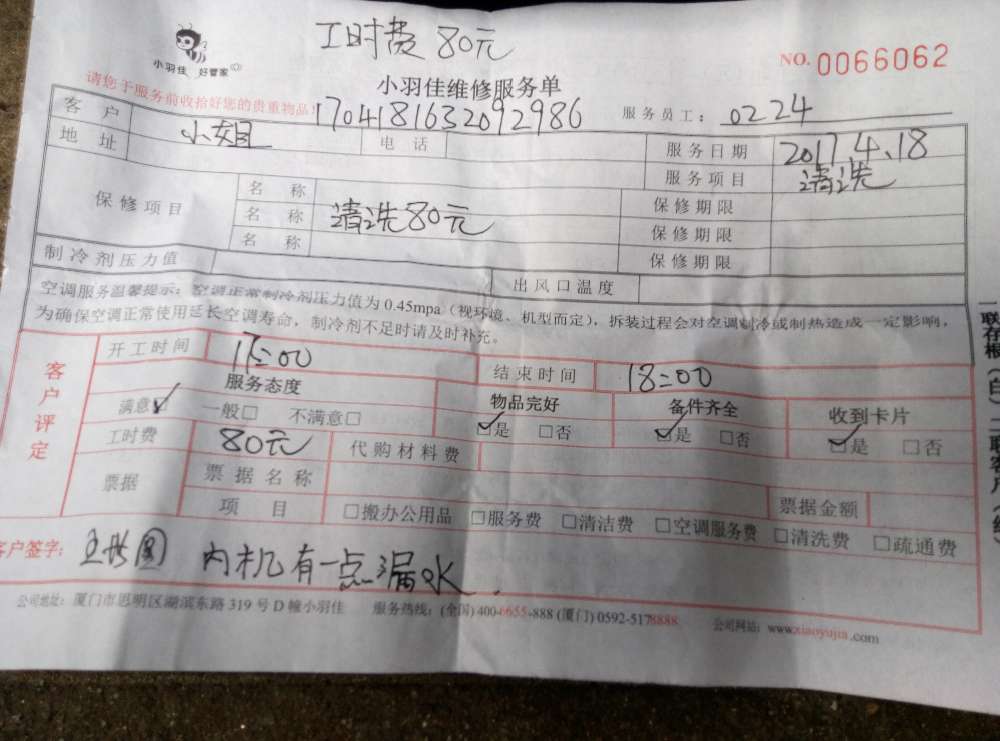 工时费 80元
小羽佳 好管家
NO. 0066062
小羽佳维修服务单
请您于服务前收拾好您的贵重物品!
1704181632092986
服务员工: 0224
客户 小姐 电话 服务日期 2017.4.18
地址 服务项目 清洗
保修项目 名称 保修期限
名称 清洗80元 保修期限
名称 保修期限
制冷剂压力值 出风口温度
空调服务温馨提示:空调正常制冷剂压力值为0.45mpa(视环境、机型而定),拆装过程会对空调制冷或制热造成一定影响,
为确保空调正常使用延长空调寿命,制冷剂不足时请及时补充。
客户评定
开工时间 15:00 结束时间 18:00
服务态度 物品完好 备件齐全 收到卡片
满意☑ 一般□ 不满意□ ☑是 □否 ☑是 □否 ☑是 □否
工时费 80元 代购材料费
票据 票据名称 票据金额
项目 □搬办公用品 □服务费 □清洁费 □空调服务费 □清洗费 □疏通费
客户签字: 内机有一点漏水.
公司地址:厦门市思明区湖滨东路319号D幢小羽佳 服务热线:(全国)400-6655-888 (厦门)0592-5178888 公司网站:www.xiaoyujia.com